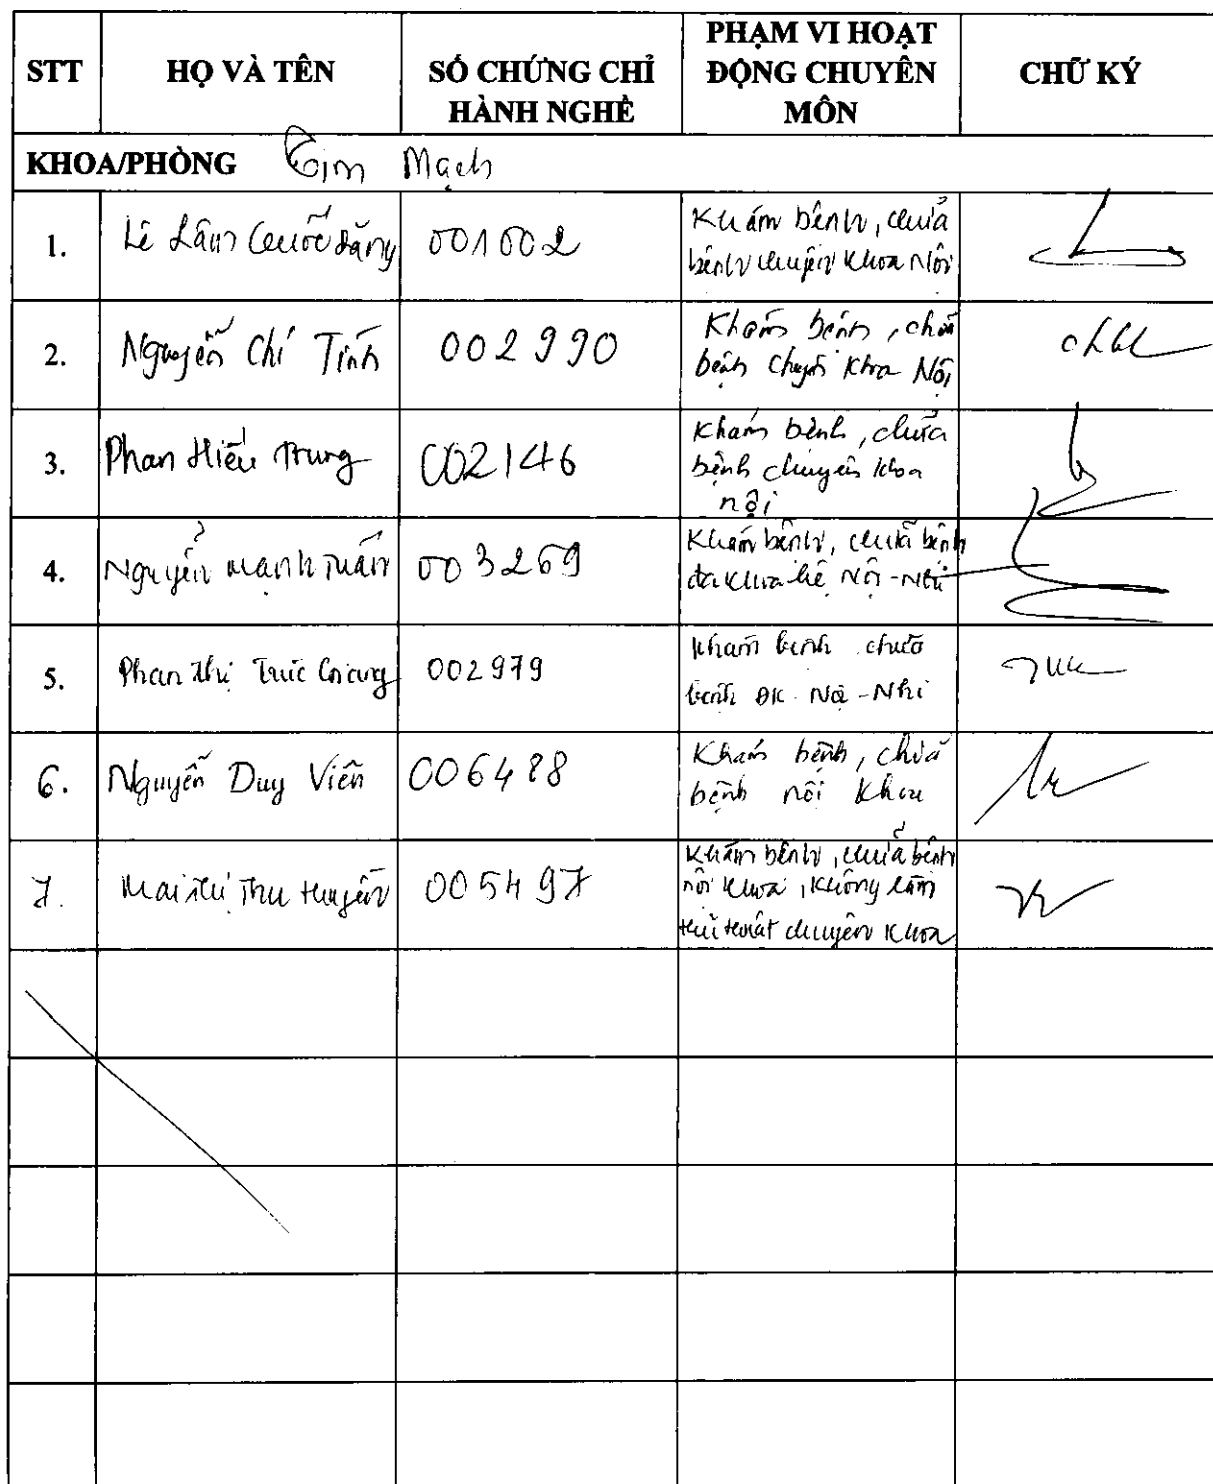 STT
HỌ VÀ TÊN
SỐ CHỨNG CHỈ
HÀNH NGHỀ
PHẠM VI HOẠT
ĐỘNG CHUYÊN
MÔN
CHỮ KÝ
KHOA/PHÒNG Tim Mạch
1.
Lê Lâm Quốc Đăng
001002
Khám bệnh, chữa
bệnh chuyên khoa Nội
2.
Nguyễn Chí Tính
002990
Khám bệnh, chữa
bệnh chuyên khoa Nội
3.
Phan Hiếu Trung
002146
Khám bệnh, chữa
bệnh chuyên khoa
nội
4.
Nguyễn Mạnh Tuấn
003269
Khám bệnh, chữa bệnh
đa khoa hệ Nội-Nhi
5.
Phan Thị Trúc
002979
Khám bệnh chữa
bệnh ĐK Nội-Nhi
6.
Nguyễn Duy Viên
006488
Khám bệnh, chữa
bệnh nội khoa
7.
Mai Thị Thu Huyền
005497
Khám bệnh, chữa bệnh
nội khoa, không làm
thủ thuật chuyên khoa